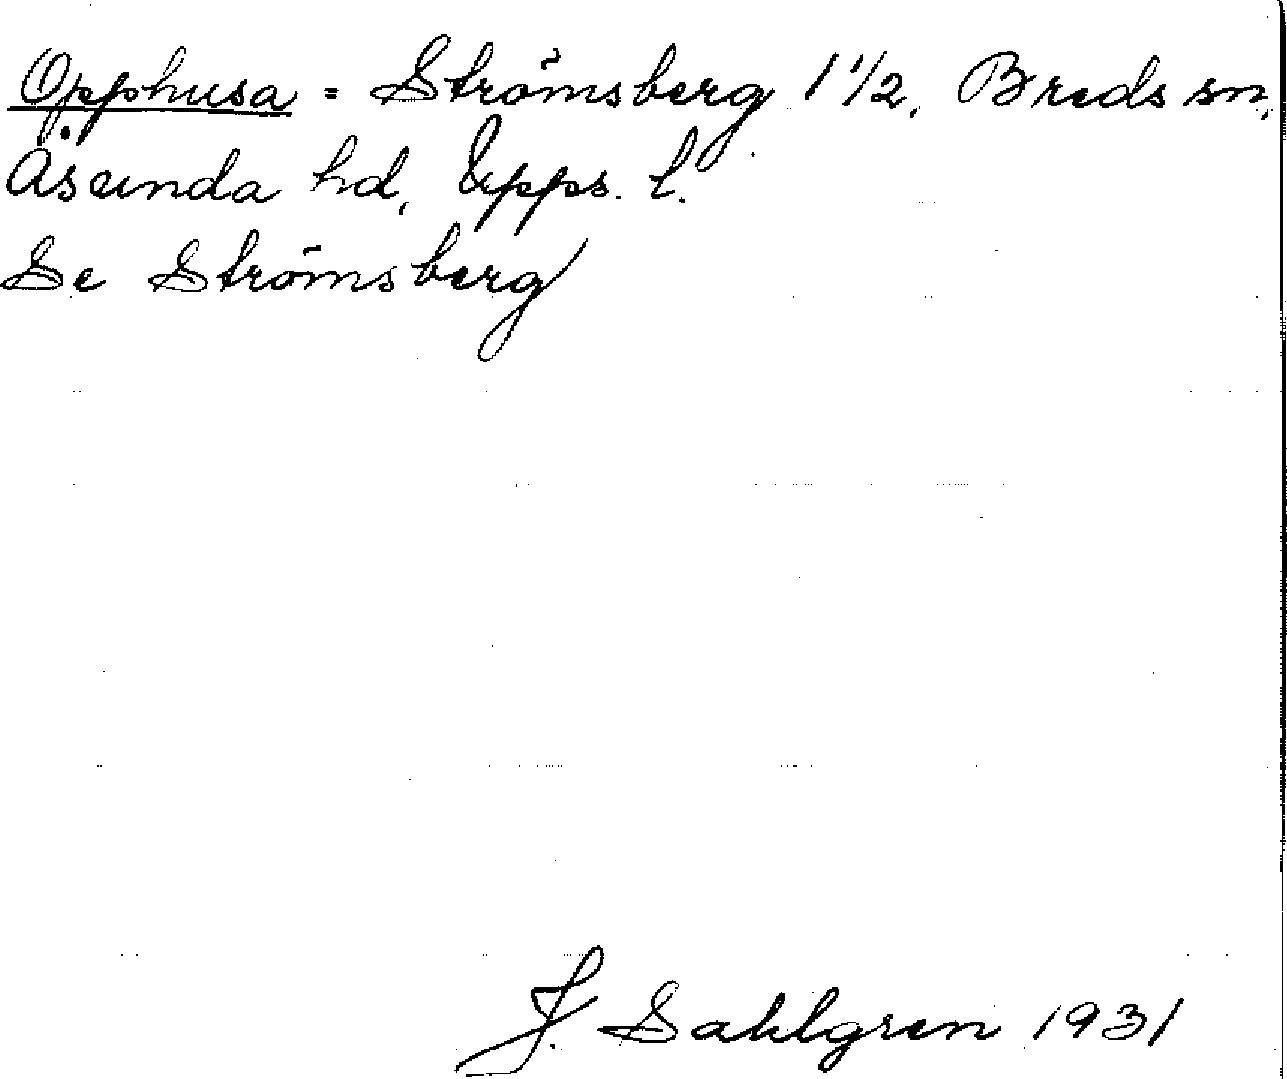 Opphusa = Strömsberg 1 1/2, Breds sn,
Åsunda hd, Upps. l.
Se Strömsberg
J. Sahlgren 1931